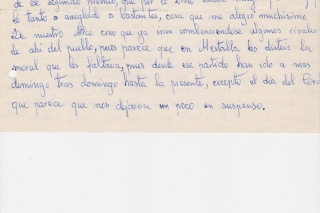 de ese segundo premio, que por lo
te tanto a amigdado a bastantes, cosa que me alegro muchísimo.
De nuestro Atco creo que ya iran convenciendose algunos rivales
de ahi del pueblo, pues parece que en Mestalla les disteis la
moral que les faltava, pues desde ese partido han ido a mas
domingo tras domingo hasta la presente, excepto el dia del Córd
que parece que nos dejaron un poco en suspenso.